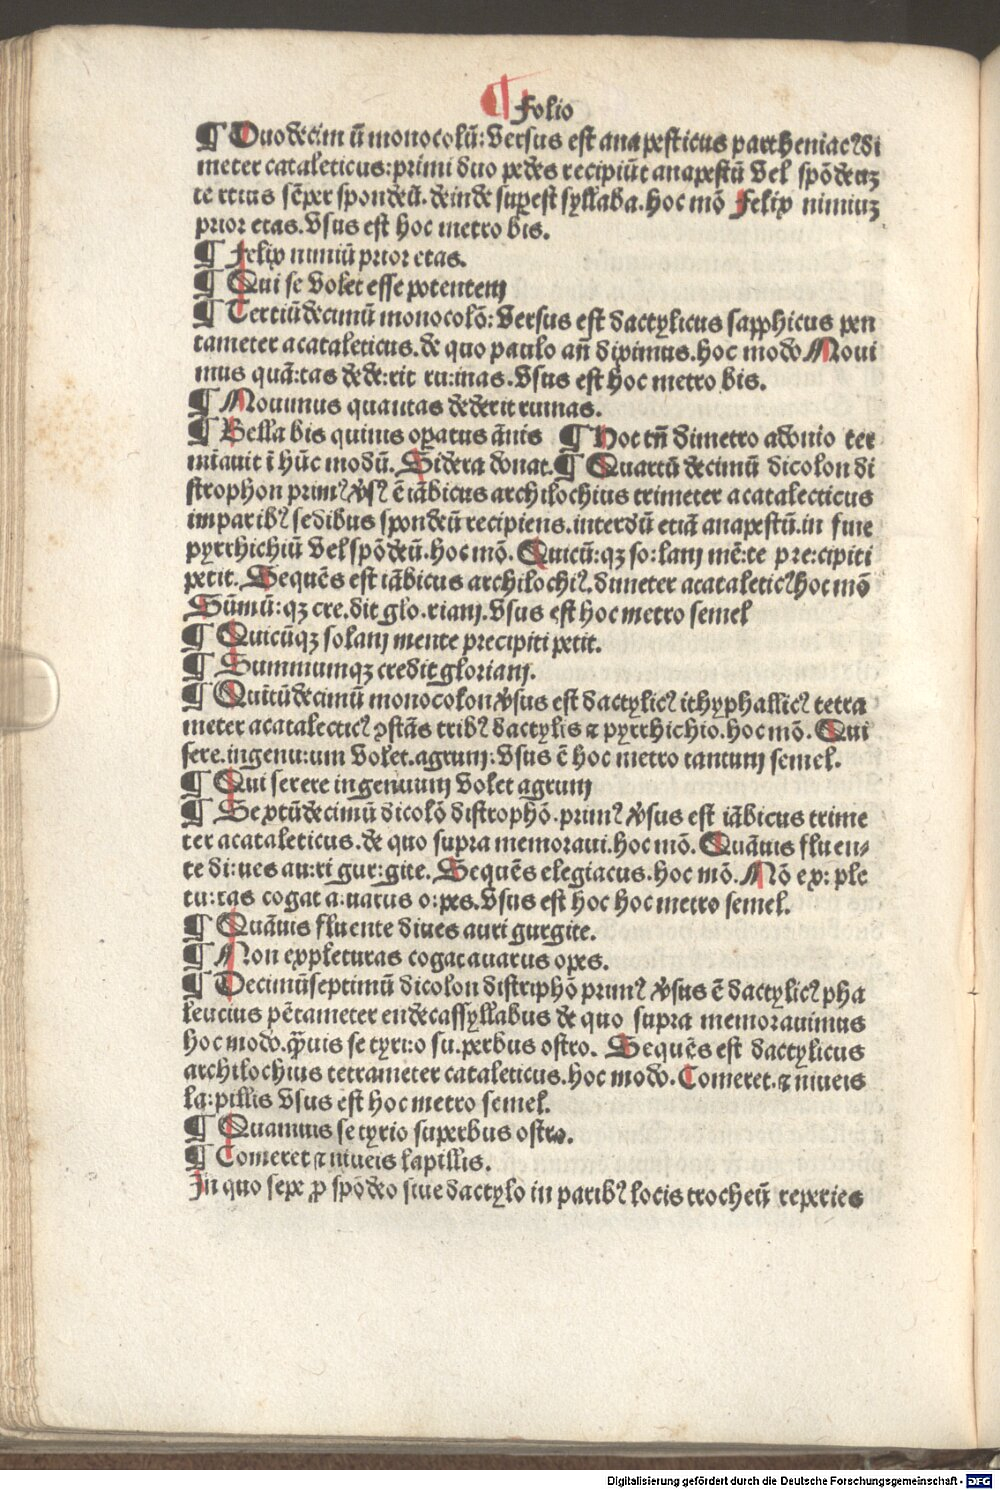 ¶ folio
¶ Duodecim ū monocolū: Versus est anapesticus partheniacꝰ di
meter cataleticus: primi duo pedes recipiūt anapestū Vel spōdeuꝫ
tertius sēper spondeū. deinde supest syllaba. hoc mō Felix nimiuꝫ
prior etas. Vsus est hoc metro bis.
¶ Felix nimiū prior etas.
¶ Qui se Volet esse potentem
¶ Tertiūdecimū monocolō: Versus est dactylicus sapphicus pen
tameter acataleticus. de quo paulo añ diximus. hoc modo Noui
mus quā:tas de de:rit ru:inas. Vsus est hoc metro bis.
¶ Nouimus quantas dederit ruinas.
¶ Bella bis quinis opatus ānis ¶ Hoc tñ dimetro adonio ter
mīauit ī hūc modū. Sidera donat. ¶ Quartū decimū dicolon di
strophon primꝰ ꝟsꝰ ē iābicus archilochius trimeter acatalecticus
imparibꝰ sedibus spondeū recipiens. interdū etiā anapestū. in fine
pyrrhichiū Vel spōdeū. hoc mō. Quicū:qꝫ so:lam mē:te pre:cipiti
petit. Sequēs est iābicus archilochiꝰ. dimeter acataleticꝰ hoc mō
Sūmū:qꝫ cre.dit glo.riam. Vsus est hoc metro semel
¶ Quicūqꝫ solam mente precipiti petit.
¶ Summumqꝫ credit gloriam.
¶ Quītūdecimū monocolon ꝟsus est dactylicꝰ ithyphallicꝰ tetra
meter acatalecticꝰ ꝯstās tribꝰ dactylis ⁊ pyrrhichio. hoc mō. Qui
sere.ingenu:um Volet.agrum: Vsus ē hoc metro tantum semel.
¶ Qui serere ingenuum Volet agrum
¶ Sextūdecimū dicolō distrophō. primꝰ ꝟsus est iābicus trime
ter acataleticus. de quo supra memoraui. hoc mō. Quāuis fluen⸗
te di:ues au:ri gur:gite. Sequēs elegiacus. hoc mō. Nō ex: ple
tu:ras cogat a:uarus o:pes. Vsus est hoc hoc metro semel.
¶ Quāuis fluente diues auri gurgite.
¶ Non expleturas cogat auarus opes.
¶ Decimūseptimū dicolon distriphō primꝰ ꝟsus ē dactylicꝰ pha
leucius pētameter endecassyllabus de quo supra memorauimus
hoc modo. q̄uis se tyri:o su.perbus ostro. Sequēs est dactylicus
archilochius tetrameter cataleticus. hoc modo. Comeret. ⁊ niueis
la:pillis Vsus est hoc metro semel.
¶ Quamuis se tyrio superbus ostro.
¶ Comeret ⁊ niueis lapillis.
In quo sepe ꝓ spōdeo siue dactylo in paribꝰ locis trocheū reperies
Digitalisierung gefördert durch die Deutsche Forschungsgemeinschaft - DFG